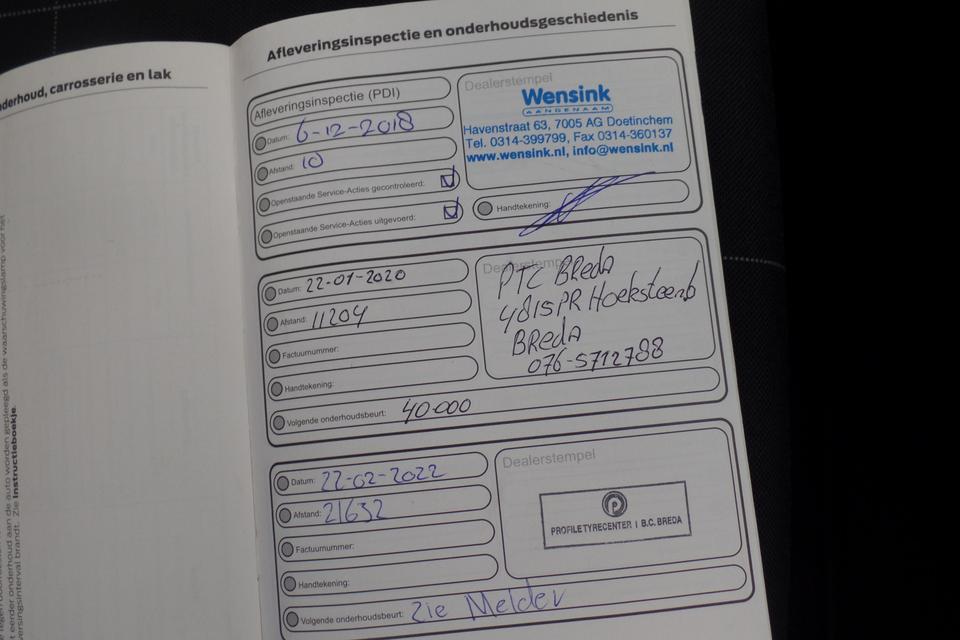 nderhoud, carrosserie en lak
eerder onderhoud aan de auto worden gepleegd als de waarschuwingslamp voor het
versingsinterval brandt. Zie Instructieboekje.
Afleveringsinspectie en onderhoudsgeschiedenis
Afleveringsinspectie (PDI)
Datum: 6-12-2018
Afstand: 10
Openstaande Service-Acties gecontroleerd:
Openstaande Service-Acties uitgevoerd:
Dealerstempel
Wensink
AANGENAAM
Havenstraat 63, 7005 AG Doetinchem
Tel. 0314-399799, Fax 0314-360137
www.wensink.nl, info@wensink.nl
Handtekening:
Datum: 22-01-2020
Afstand: 11204
Factuurnummer:
Handtekening:
Volgende onderhoudsbeurt: 40.000
Dealerstempel
PTC BRedA
4815PR Hoeksteenb
BRedA
076-5712788
Datum: 22-02-2022
Afstand: 21632
Factuurnummer:
Handtekening:
Volgende onderhoudsbeurt: Zie Melder
Dealerstempel
P
PROFILETYRECENTER I B.C. BREDA